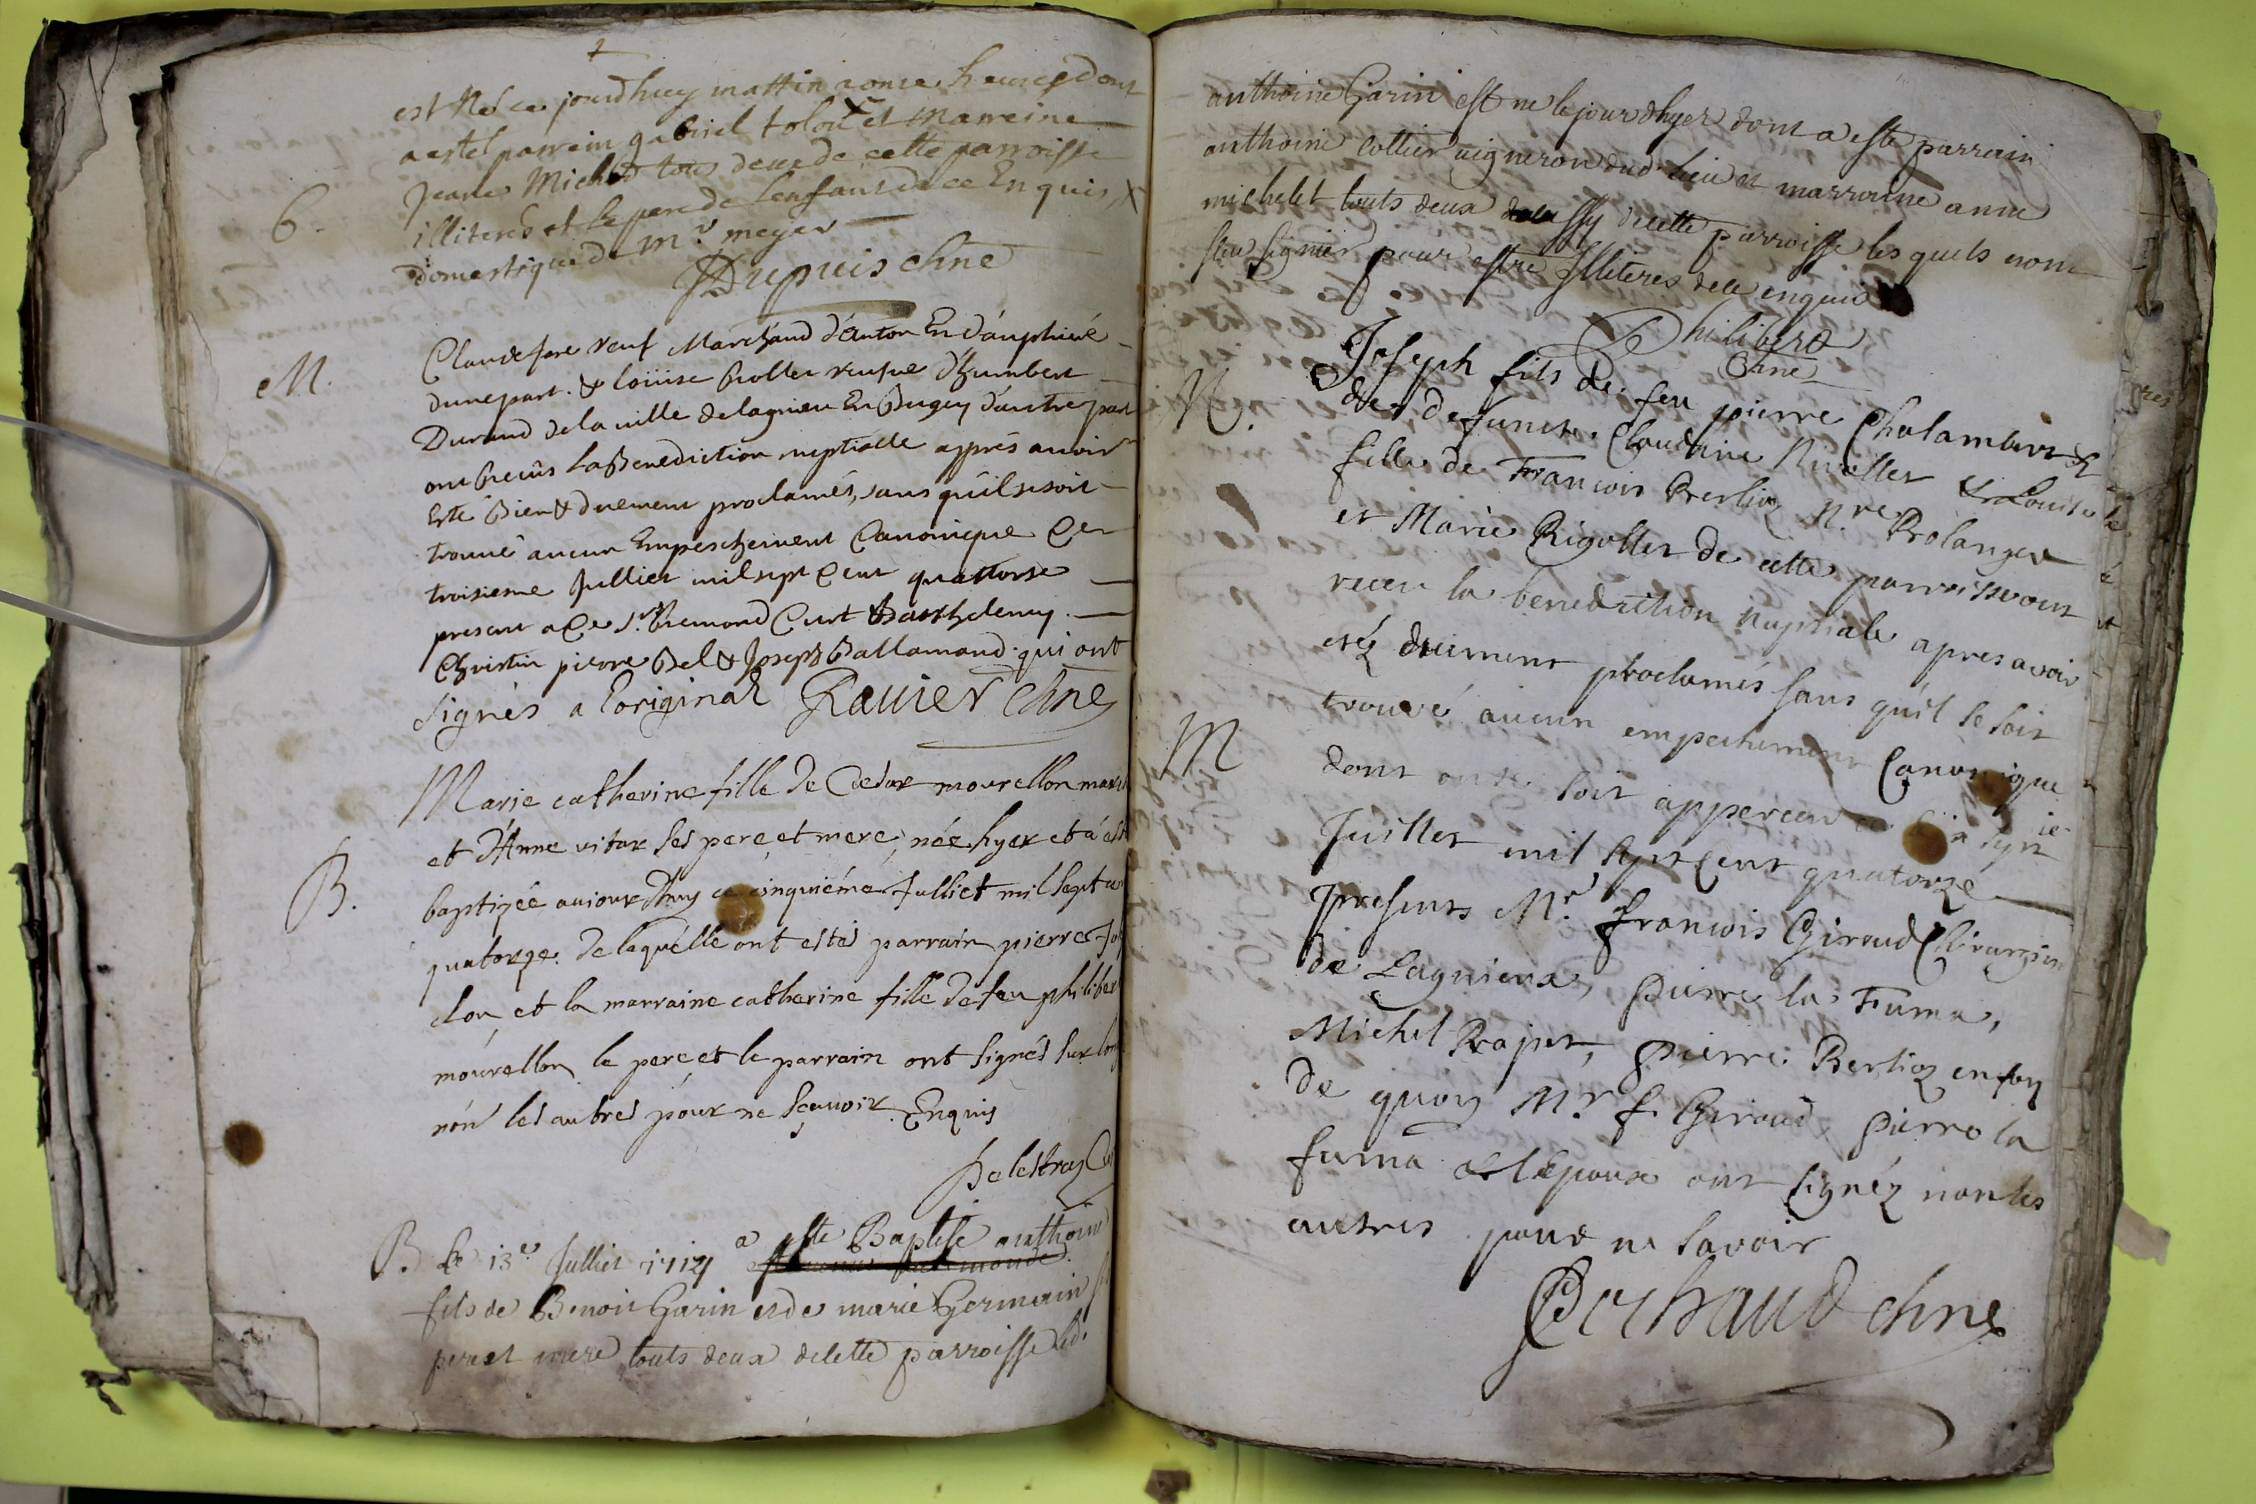 est Né ce jourdhuy mattin a onze heures dont
a esté parrein gabriel tolon et Marreine
jeane Michel tous deux de cette parroisse
6.
illiterés et le pere de lenfant de ce Enquis
domestique de Mr. meyer
Dupuis chne
M.
Claude fare veuf Marchand d'Anton En dauphiné
dune part. & loüise Crollet veufve d'humbert
Durand de la ville de lagnieu En Bugey d'autre part
ont Receüs la Benediction nuptialle appres avoir
Esté Bien & duement proclamés, sans qu'il se soit
trouvé aucun Empeschement Canonique Ce
troisieme Julliet mil sept Cent quattorse
present a Ce Sr. Bremond Curt & Barthelemy
Christin pierre Bel & Joseph Ballamand qui ont
signés a l'original Ravier chne
Marie catherine fille de Cesar mourellon
et d'Anne vitar ses pere et mere, née hyer et a esté
B.
baptizée aujourdhuy ce cinquiéme Julliet mil sept
quatorze. de laquelle ont estés parrain pierre
lon et la marraine catherine fille de feu philiber
mourellon le pere et le parrain ont signés sur
non les autres pour ne sçavoir Enquis
Delestraz
B. Le 13e Julliet 1714 a esté Baptisé anthoine
fils de Benoit Garin et de marie Germain
pere et mere touts deux de cette parroisse led.
anthoine Garin est ne le jour dhyer dont a esté parrain
anthoine Cottier vigneron dud. lieu et marraine anne
michelet touts deux aussy de cette parroisse les quels nont
sceu signer pour estre Illiteres de ce enquis
Philibert
Chne
M.
Joseph fils de feu pierre Chalambert &
de defuncte Claudine Nivollet & Louise
fille de Francois Berlioz Nre. Rolanger
et Marie Rigollet de cette parroisse ont
receu la benediction nuptiale apres avoir
estéz duement proclamés sans qu'il se soit
trouvé aucun empechement Canonique
M
dont on se soit apperceu ce
Juillet mil sept Cent quatorzé
presents Mr. francois Giraud Chirurgien
de Lagnieux, pierre la Fuma,
Michel Rajat, pierre Berlioz en foy
de quoy Mr f. Giraud, pierre la
fuma et l'epoux ont signéz non les
autres pour ne savoir
Bertraud chne